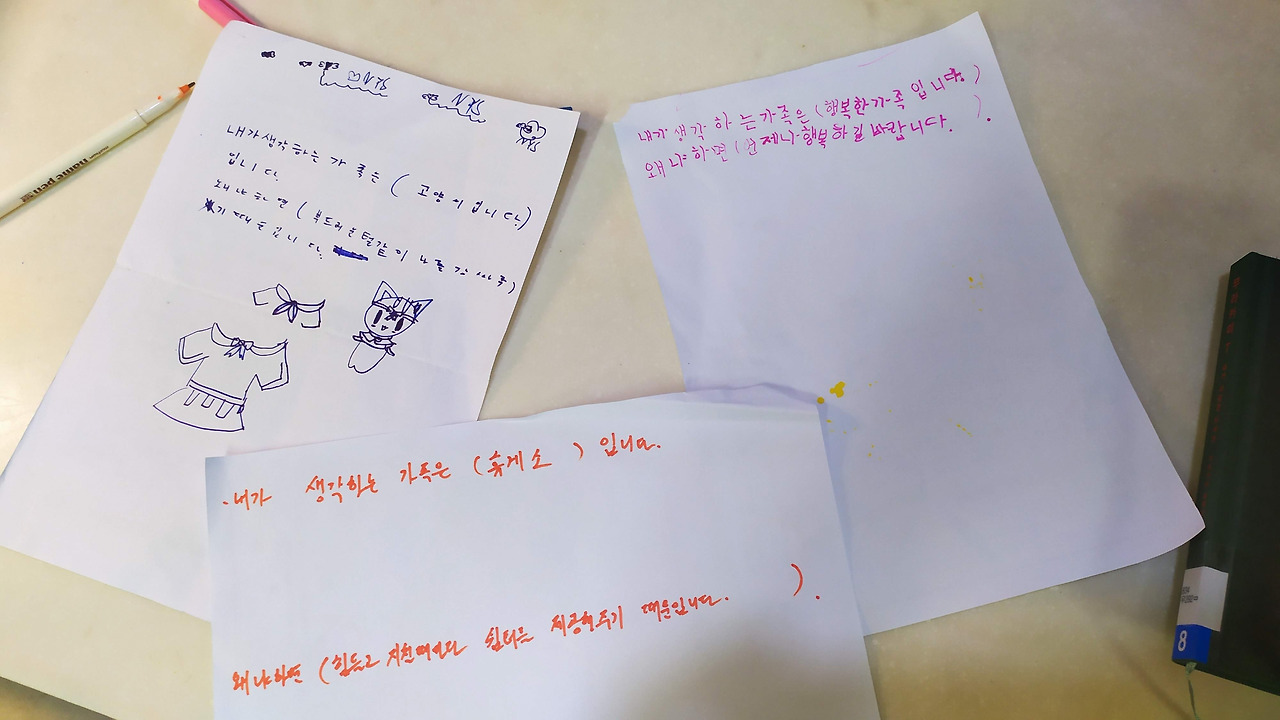 NYS
NYS
NYS
내가 생각하는 가족은 ( 고양이입니다.)
입니다.
왜냐하면 ( 부드러운털같이 나를 감싸주)
기 때문입니다.
내가 생각하는 가족은 (행복한가족입니다)
왜냐하면 (언제나행복하길바랍니다. ).
.내가 생각하는 가족은 (휴게소 ) 입니다.
왜냐하면 (힘들고 지친때마다 쉼터를 제공해주기 때문입니다. ).
name pen
8